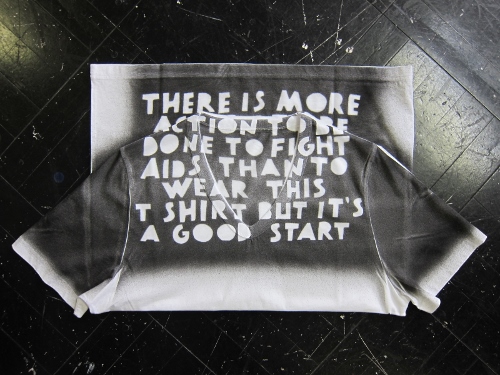 THERE IS MORE
ACTION TO BE
DONE TO FIGHT
AIDS THAN TO
WEAR THIS
T SHIRT BUT IT'S
A GOOD START